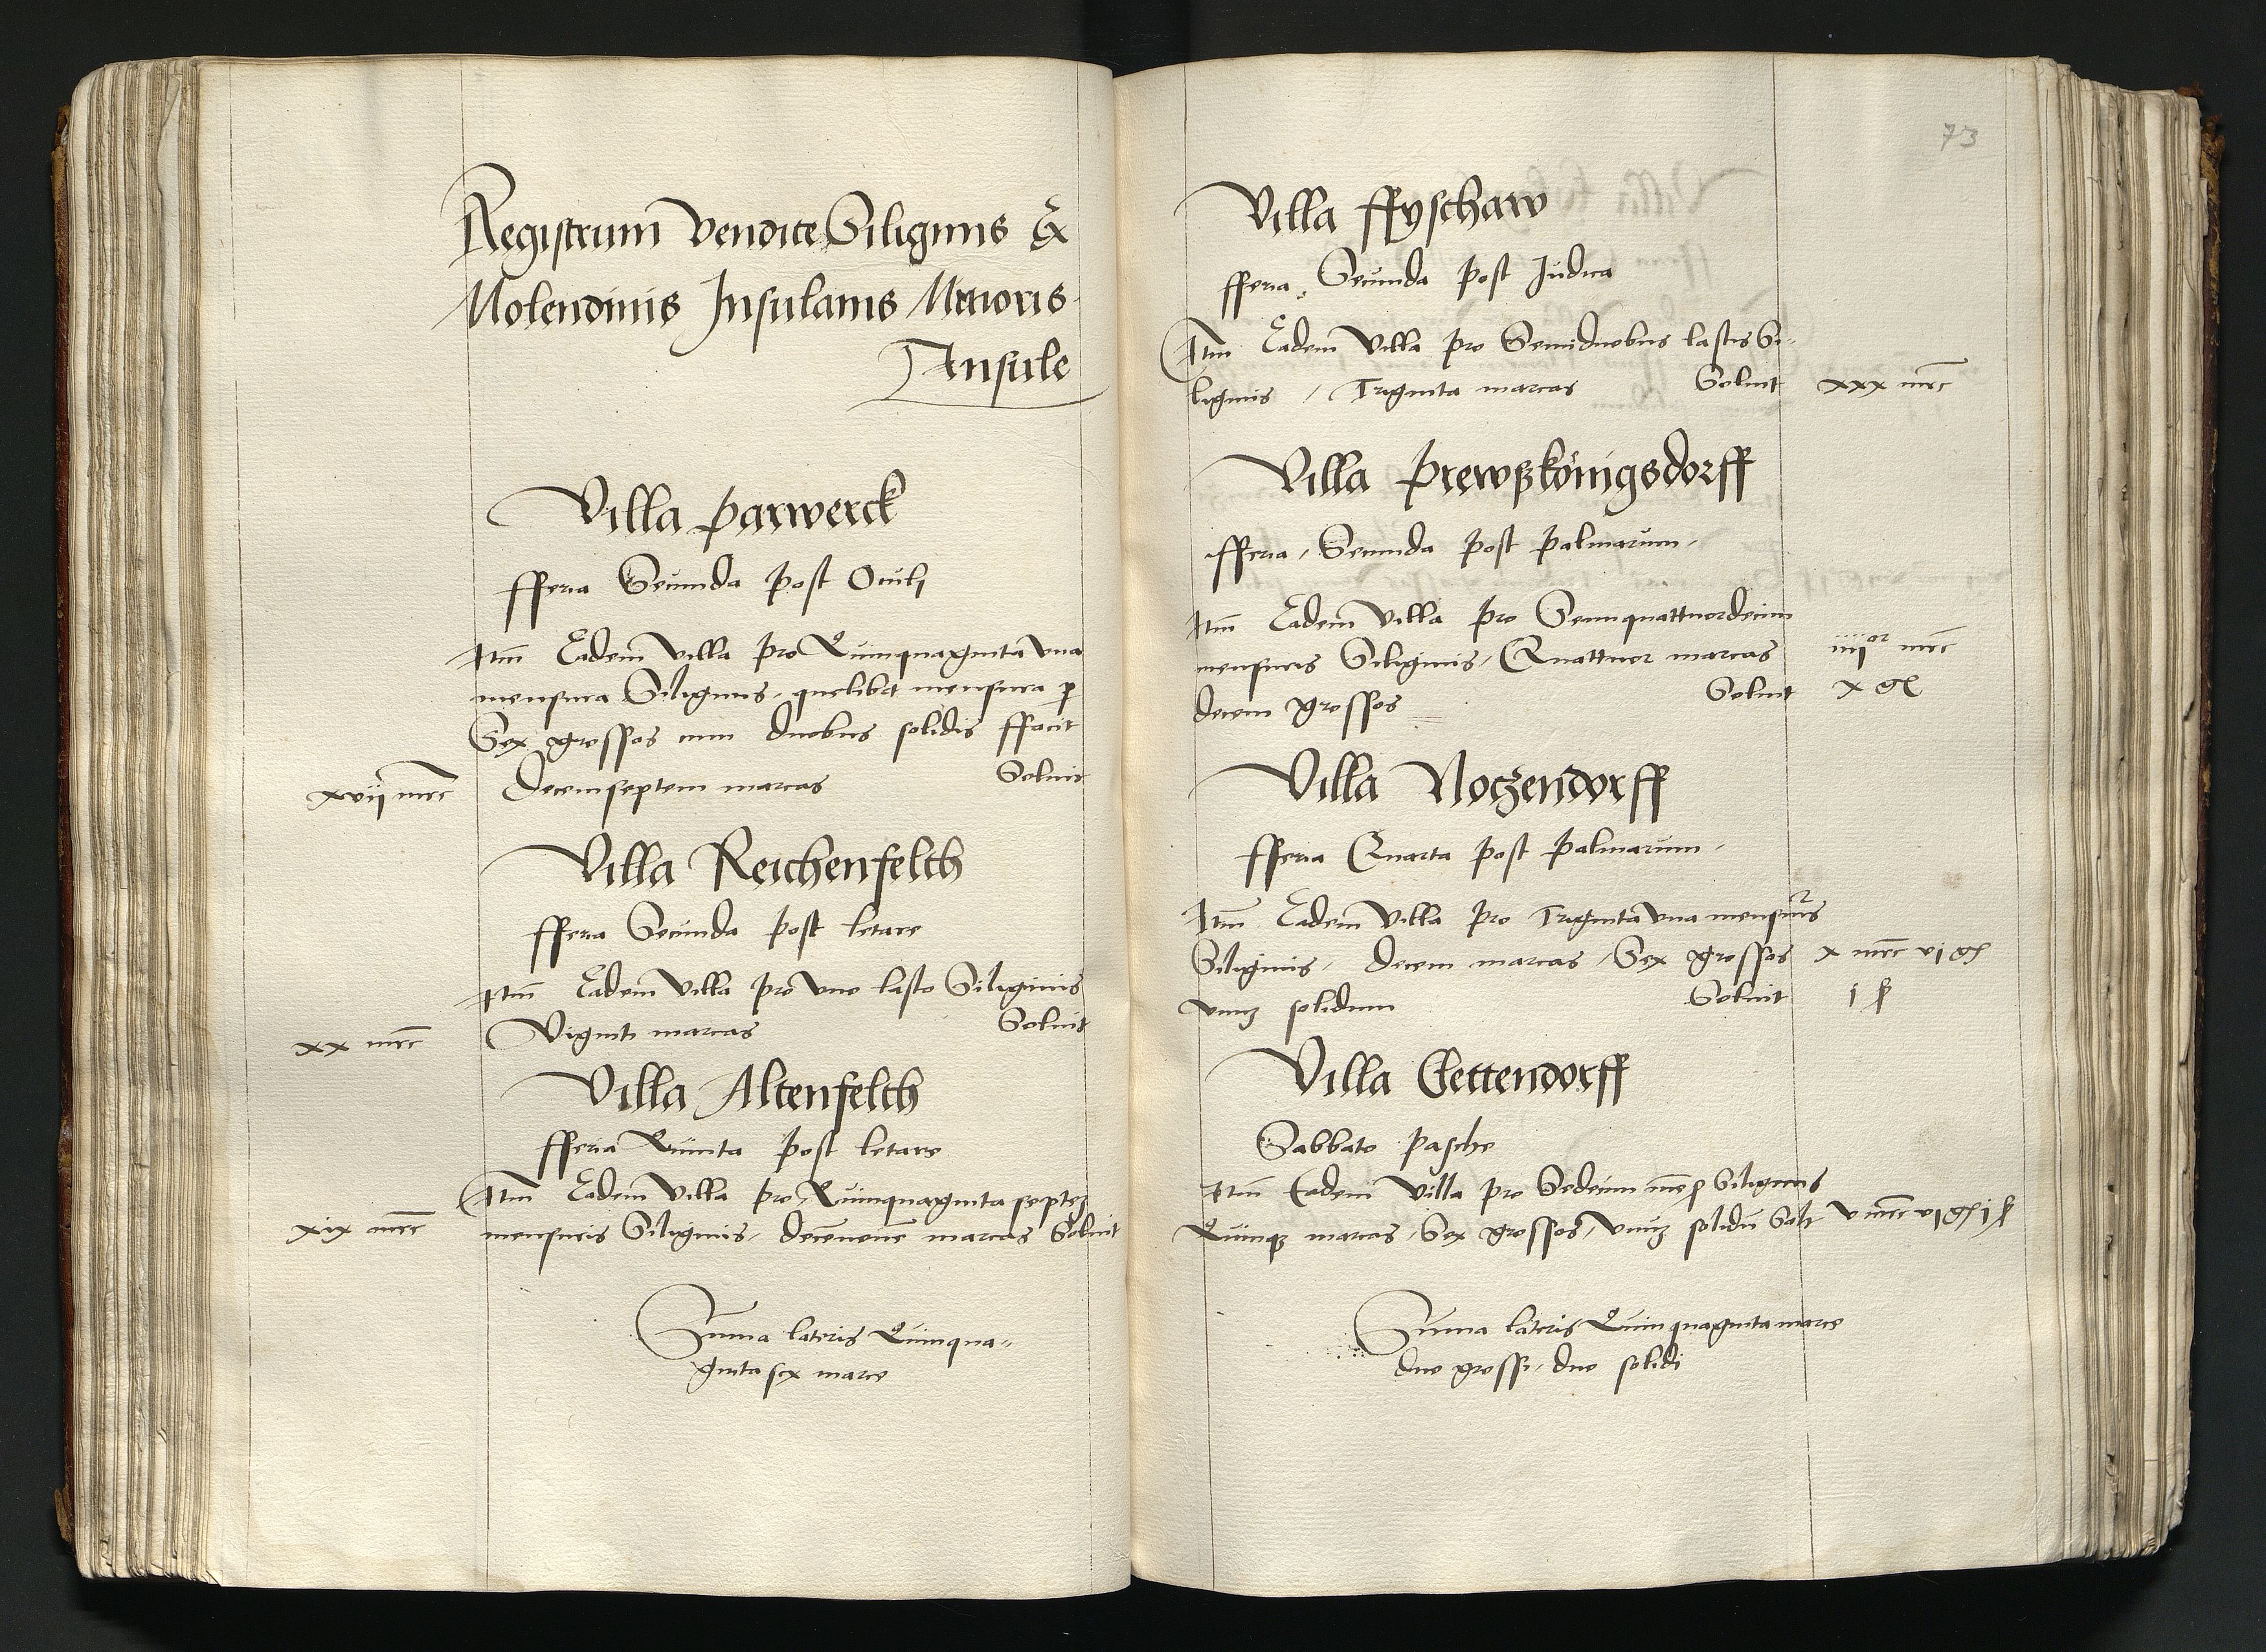 Registrum vendite Siliginis Ex
Molendinis Insulanis Minoris
Insule
Villa parwerck
fferia Secunda post Oculi
Itm̄ Eadem villa pro Quinquaginta vna
mensura Siliginis, quelibet mensura p
Sex grossos cum duobus solidis ffacit
xvij mrc Decemseptem marcas Soluit
Villa Reichenfelth
fferia Secunda post letare
Itm̄ Eadem villa pro vno lasto Siliginis
xx mrc Viginti marcas Soluit
Villa Altenfelth
fferia Quinta post letare
Itm̄ Eadem villa pro Quinquaginta septeʒ
xix mrc mensuris Siliginis, decēnouē marcas Soluit
Sūma lateris Quinqua-
ginta sex marce
73
Villa ffyschaw
fferia Secunda post Judica
Itm̄ Eadem villa pro Semiduobus lastis Si-
liginis / Triginta marcas Soluit xxx mrc
Villa prewßkönigsdorff
fferia, Secunda post palmarum,
Itm̄ Eadem villa pro Semiquattuordecim
mensuris Siliginis, Quattuor marcas iiijor mrc
decem grossos Soluit x gr
Villa Noczendorff
fferia Quarta post palmarum,
Itm̄ Eadem villa pro Triginta vna mensuris
Siliginis, decem marcas, Sex grossos x mrc vj gr
vnuʒ solidum Soluit j ß
Villa Tettendorff
Sabbato pasche
Itm̄ Eadem villa pro Sedecim mēs Siliginis
Quinqʒ marcas, Sex grossos, vnuʒ solidū Solt v mrc vj gr j ß
Sūma lateris Quinquaginta marce
duo grossi, duo solidi